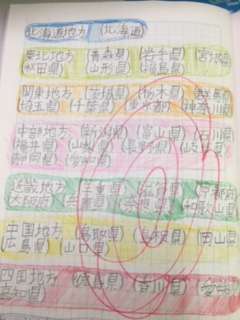 北海道地方 (北海道)
東北地方 (青森県) (岩手県) (宮城
秋田県) (山形県) (福島県)
関東地方 (茨城県) (栃木県) (群馬
埼玉県) (千葉県) (東京都) (神奈川県)
中部地方 (新潟県) (富山県) (石川県)
(福井県) (山梨県) (長野県) (岐阜県)
(静岡県) (愛知県)
近畿地方 (三重県) (滋賀県) (京都府)
大阪府) (兵庫県) (奈良県) (和歌山県)
中国地方 (鳥取県) (島根県) (岡山県)
(広島県) (山口県)
四国地方 (徳島県) (香川県) (愛媛
高知県)